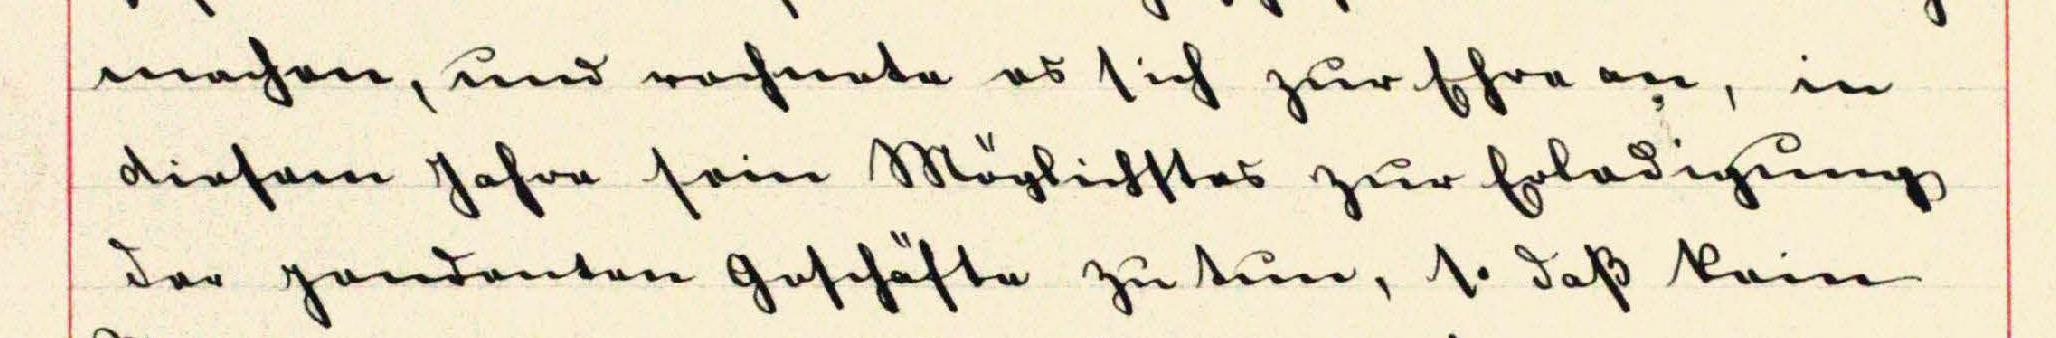 machen, und rechnete es sich zur Ehre an, in
diesem Jahre sein Möglichstes zur Erledigung
der pendenten Geschäfte zu tun, so daß kein